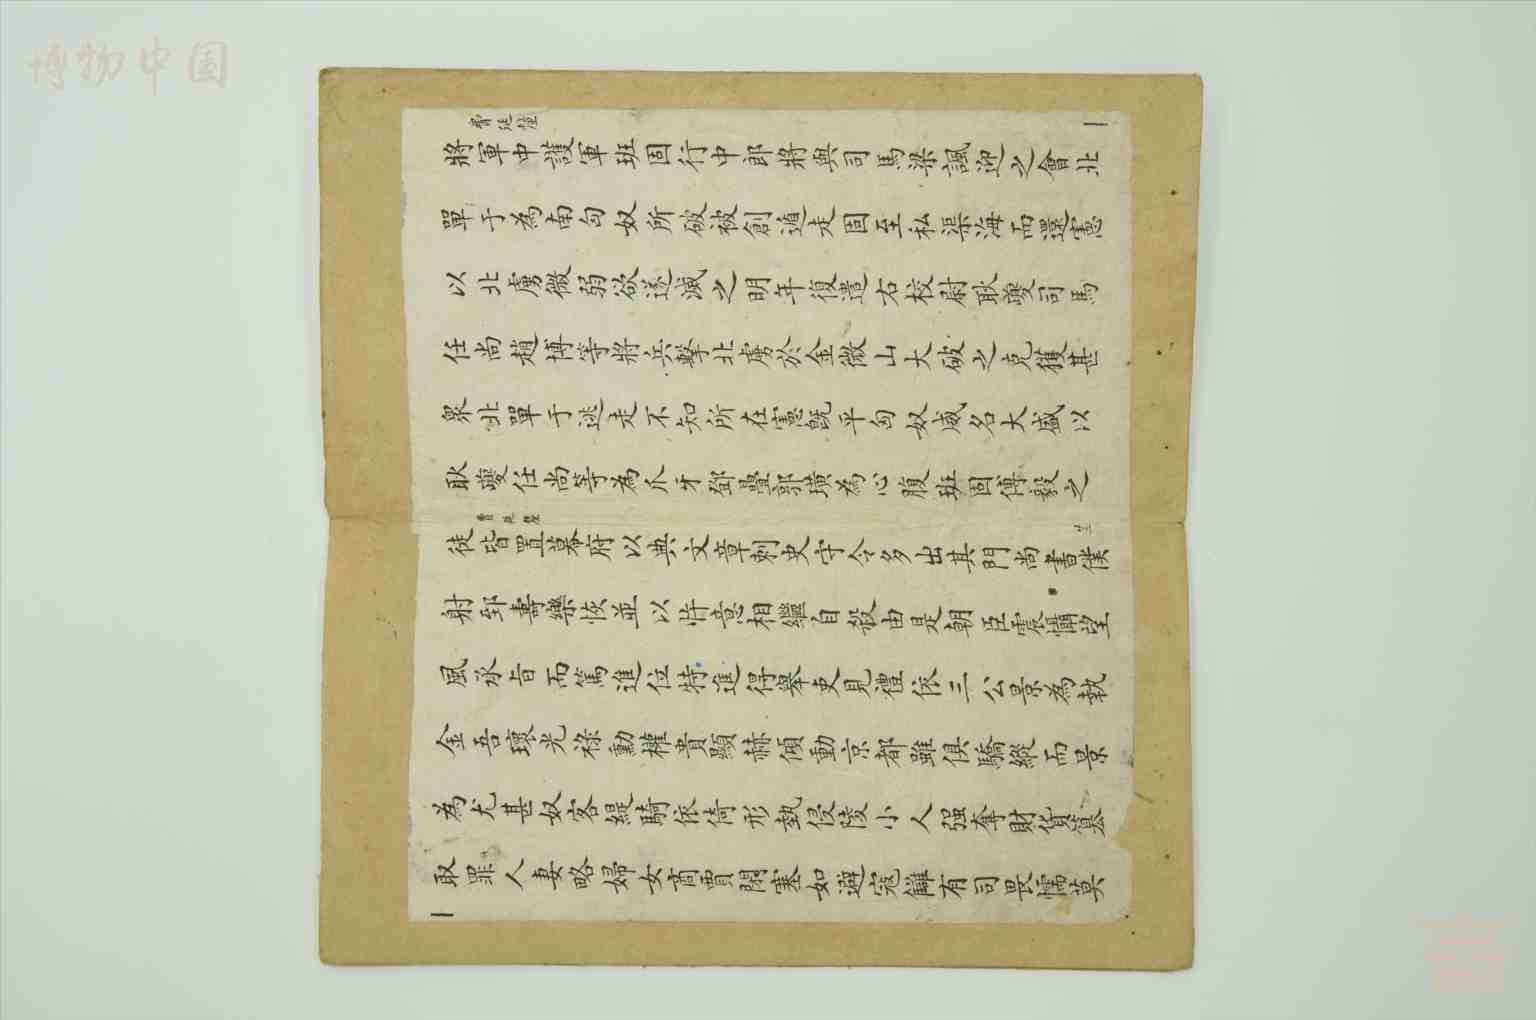 博物中国
將軍中護軍班固行中郎將與司馬梁諷迎之會北
單于為南匈奴所破被創遁走固至私渠海而還憲
以北虜微弱欲遂滅之明年復遣右校尉耿夔司馬
任尚趙博等將兵擊北虜於金微山大破之克獲甚
衆北單于逃走不知所在憲既平匈奴威名大盛以
耿夔任尚等為爪牙鄧疊郭璜為心腹班固傅毅之
徒皆置幕府以典文章刺史守令多出其門尚書僕
射郅壽樂恢並以忤意相繼自殺由是朝臣震懾望
風承旨而篤進位特進得舉吏見禮依三公景為執
金吾瓌光祿勳權貴顯赫傾動京都雖俱驕縱而景
為尤甚奴客緹騎依倚形埶侵陵小人强奪財貨篡
取罪人妻略婦女商賈閉塞如避寇讎有司畏懦莫